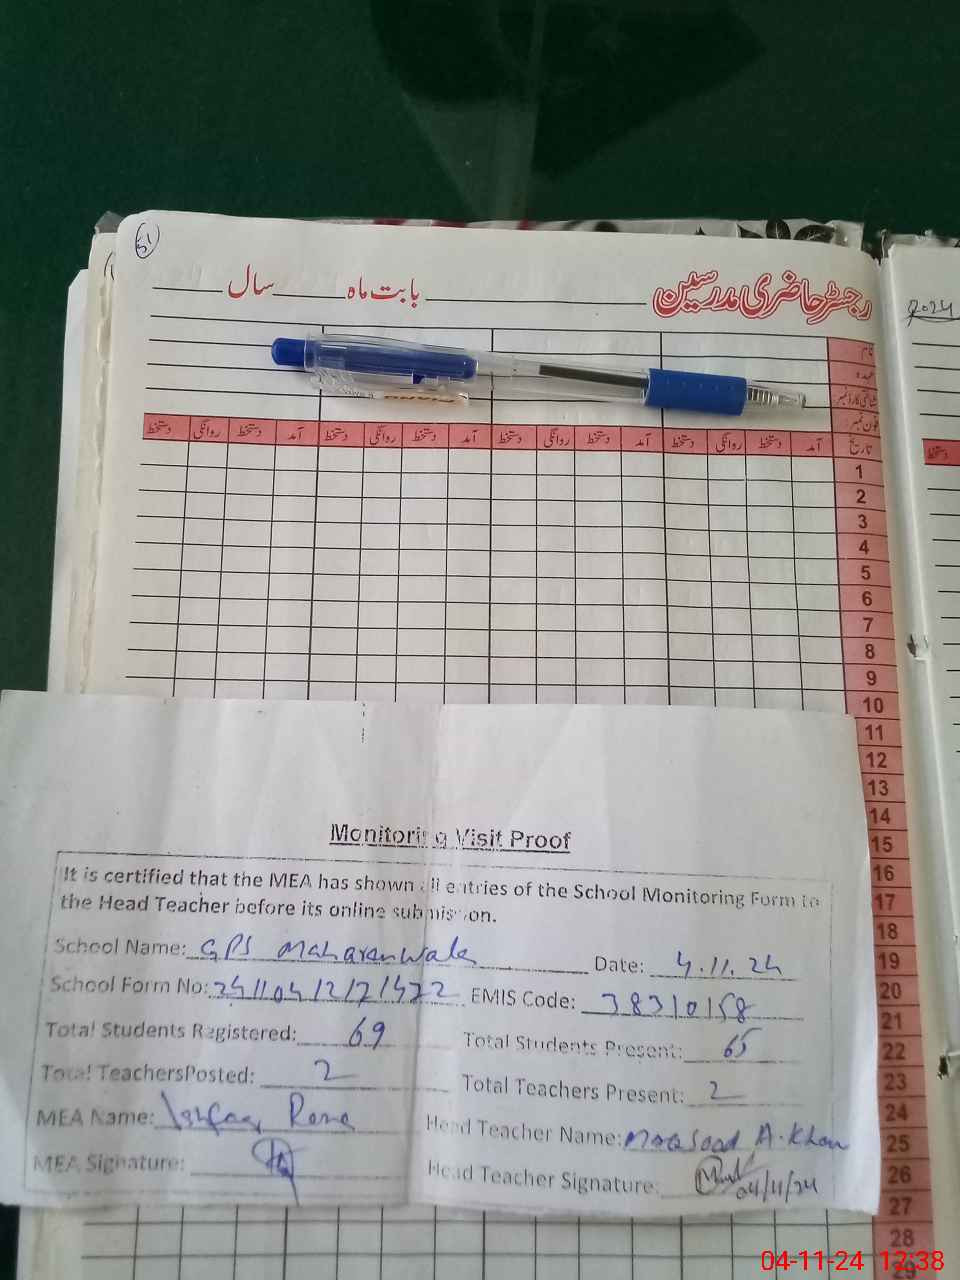 51
رجسٹر حاضری مدرسین ــــــ بابت ماہ ــــــ سال ــــــ
2024
نام
عہدہ
شناختی کارڈ نمبر
فون نمبر
تاریخ آمد دستخط روانگی دستخط آمد دستخط روانگی دستخط آمد دستخط روانگی دستخط آمد دستخط روانگی دستخط
دستخط
1
2
3
4
5
6
7
8
9
10
11
12
13
14
15
16
17
18
19
20
21
22
23
24
25
26
27
28
29
Monitoring Visit Proof
It is certified that the MEA has shown all entries of the School Monitoring Form to
the Head Teacher before its online submission.
School Name: GPS Maharanwala Date: 4.11.24
School Form No: 241104121271422 EMIS Code: 38310158
Total Students Registered: 69 Total Students Present: 65
Total TeachersPosted: 2 Total Teachers Present: 2
MEA Name: Ishfaq Rana Head Teacher Name: Maqsood A. Khan
MEA Signature: Head Teacher Signature: 04/11/24
04-11-24 12:38